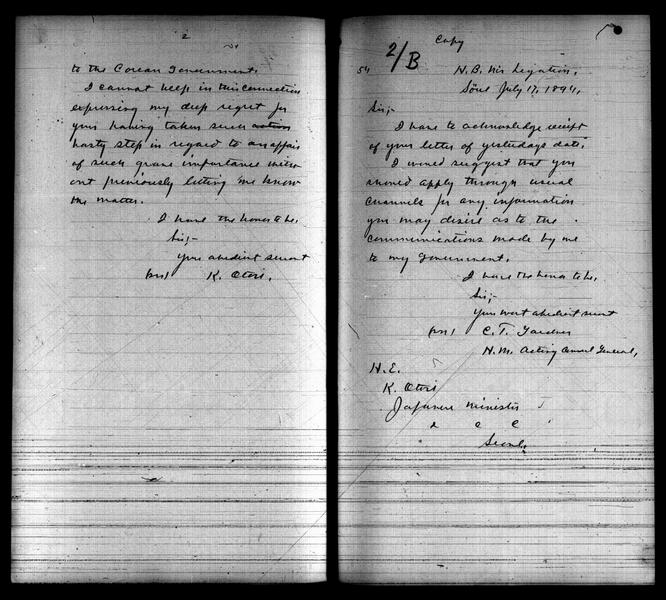 2
to the Corean Government.
I cannot keep in this connection
expressing my deep regret for
your having taken such action
hasty step in regard to an affair
of such grave importance with-
out previously letting me know
the matter.
I have the honor to be,
Sir;-
Your obedient servant
K. Otori.
Copy
2/B
54
H. B. M's Legation,
Söul July 17, 1894,
Sir;-
I have to acknowledge receipt
of your letter of yesterdays date.
I would suggest that you
should apply through usual
channels for any information
you may desire as to the
communications made by me
to my government.
I have the honor to be,
Sir;-
Your most obedient servant
C. T. Gardner
H. M. Acting Consul General,
H. E.
K. Otori
Japanese Minister
& c c
Seoul,